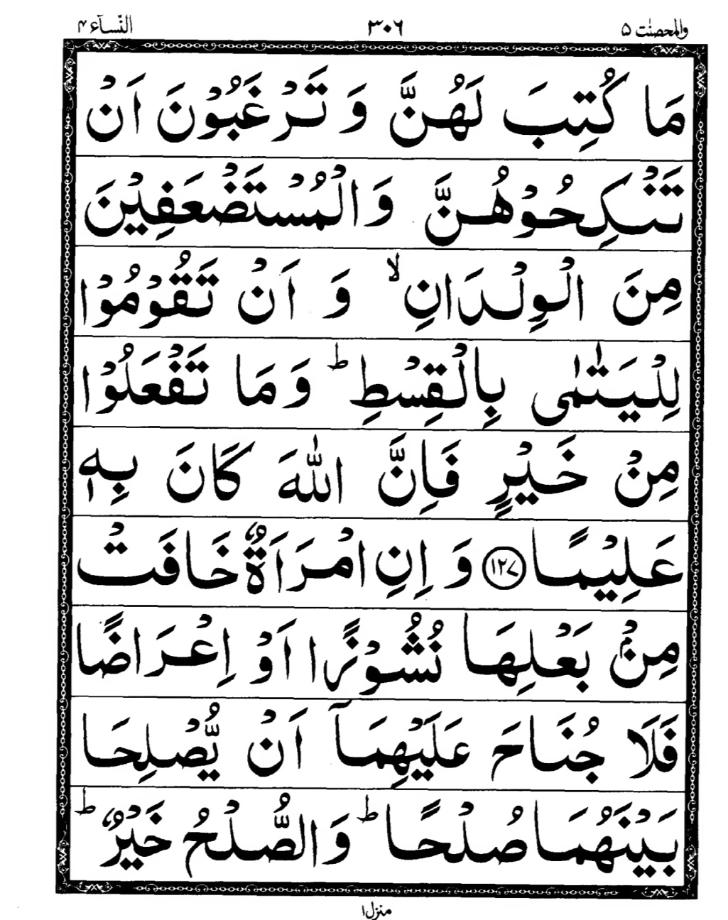 والمحصنت ۵ ۳۰۶ النسآء ۴
مَا كُتِبَ لَهُنَّ وَ تَرْغَبُوْنَ اَنْ
تَنْكِحُوْهُنَّ وَالْمُسْتَضْعَفِيْنَ
مِنَ الْوِلْدَانِ ۙ وَ اَنْ تَقُوْمُوْا
لِلْيَتٰمٰى بِالْقِسْطِ ؕ وَ مَا تَفْعَلُوْا
مِنْ خَيْرٍ فَاِنَّ اللّٰهَ كَانَ بِهٖ
عَلِيْمًا ﴿۱۲۷﴾ وَ اِنِ امْرَاَةٌ خَافَتْ
مِنْۢ بَعْلِهَا نُشُوْزًا اَوْ اِعْرَاضًا
فَلَا جُنَاحَ عَلَيْهِمَاۤ اَنْ يُّصْلِحَا
بَيْنَهُمَا صُلْحًا ؕ وَالصُّلْحُ خَيْرٌ ؕ
منزل ۱